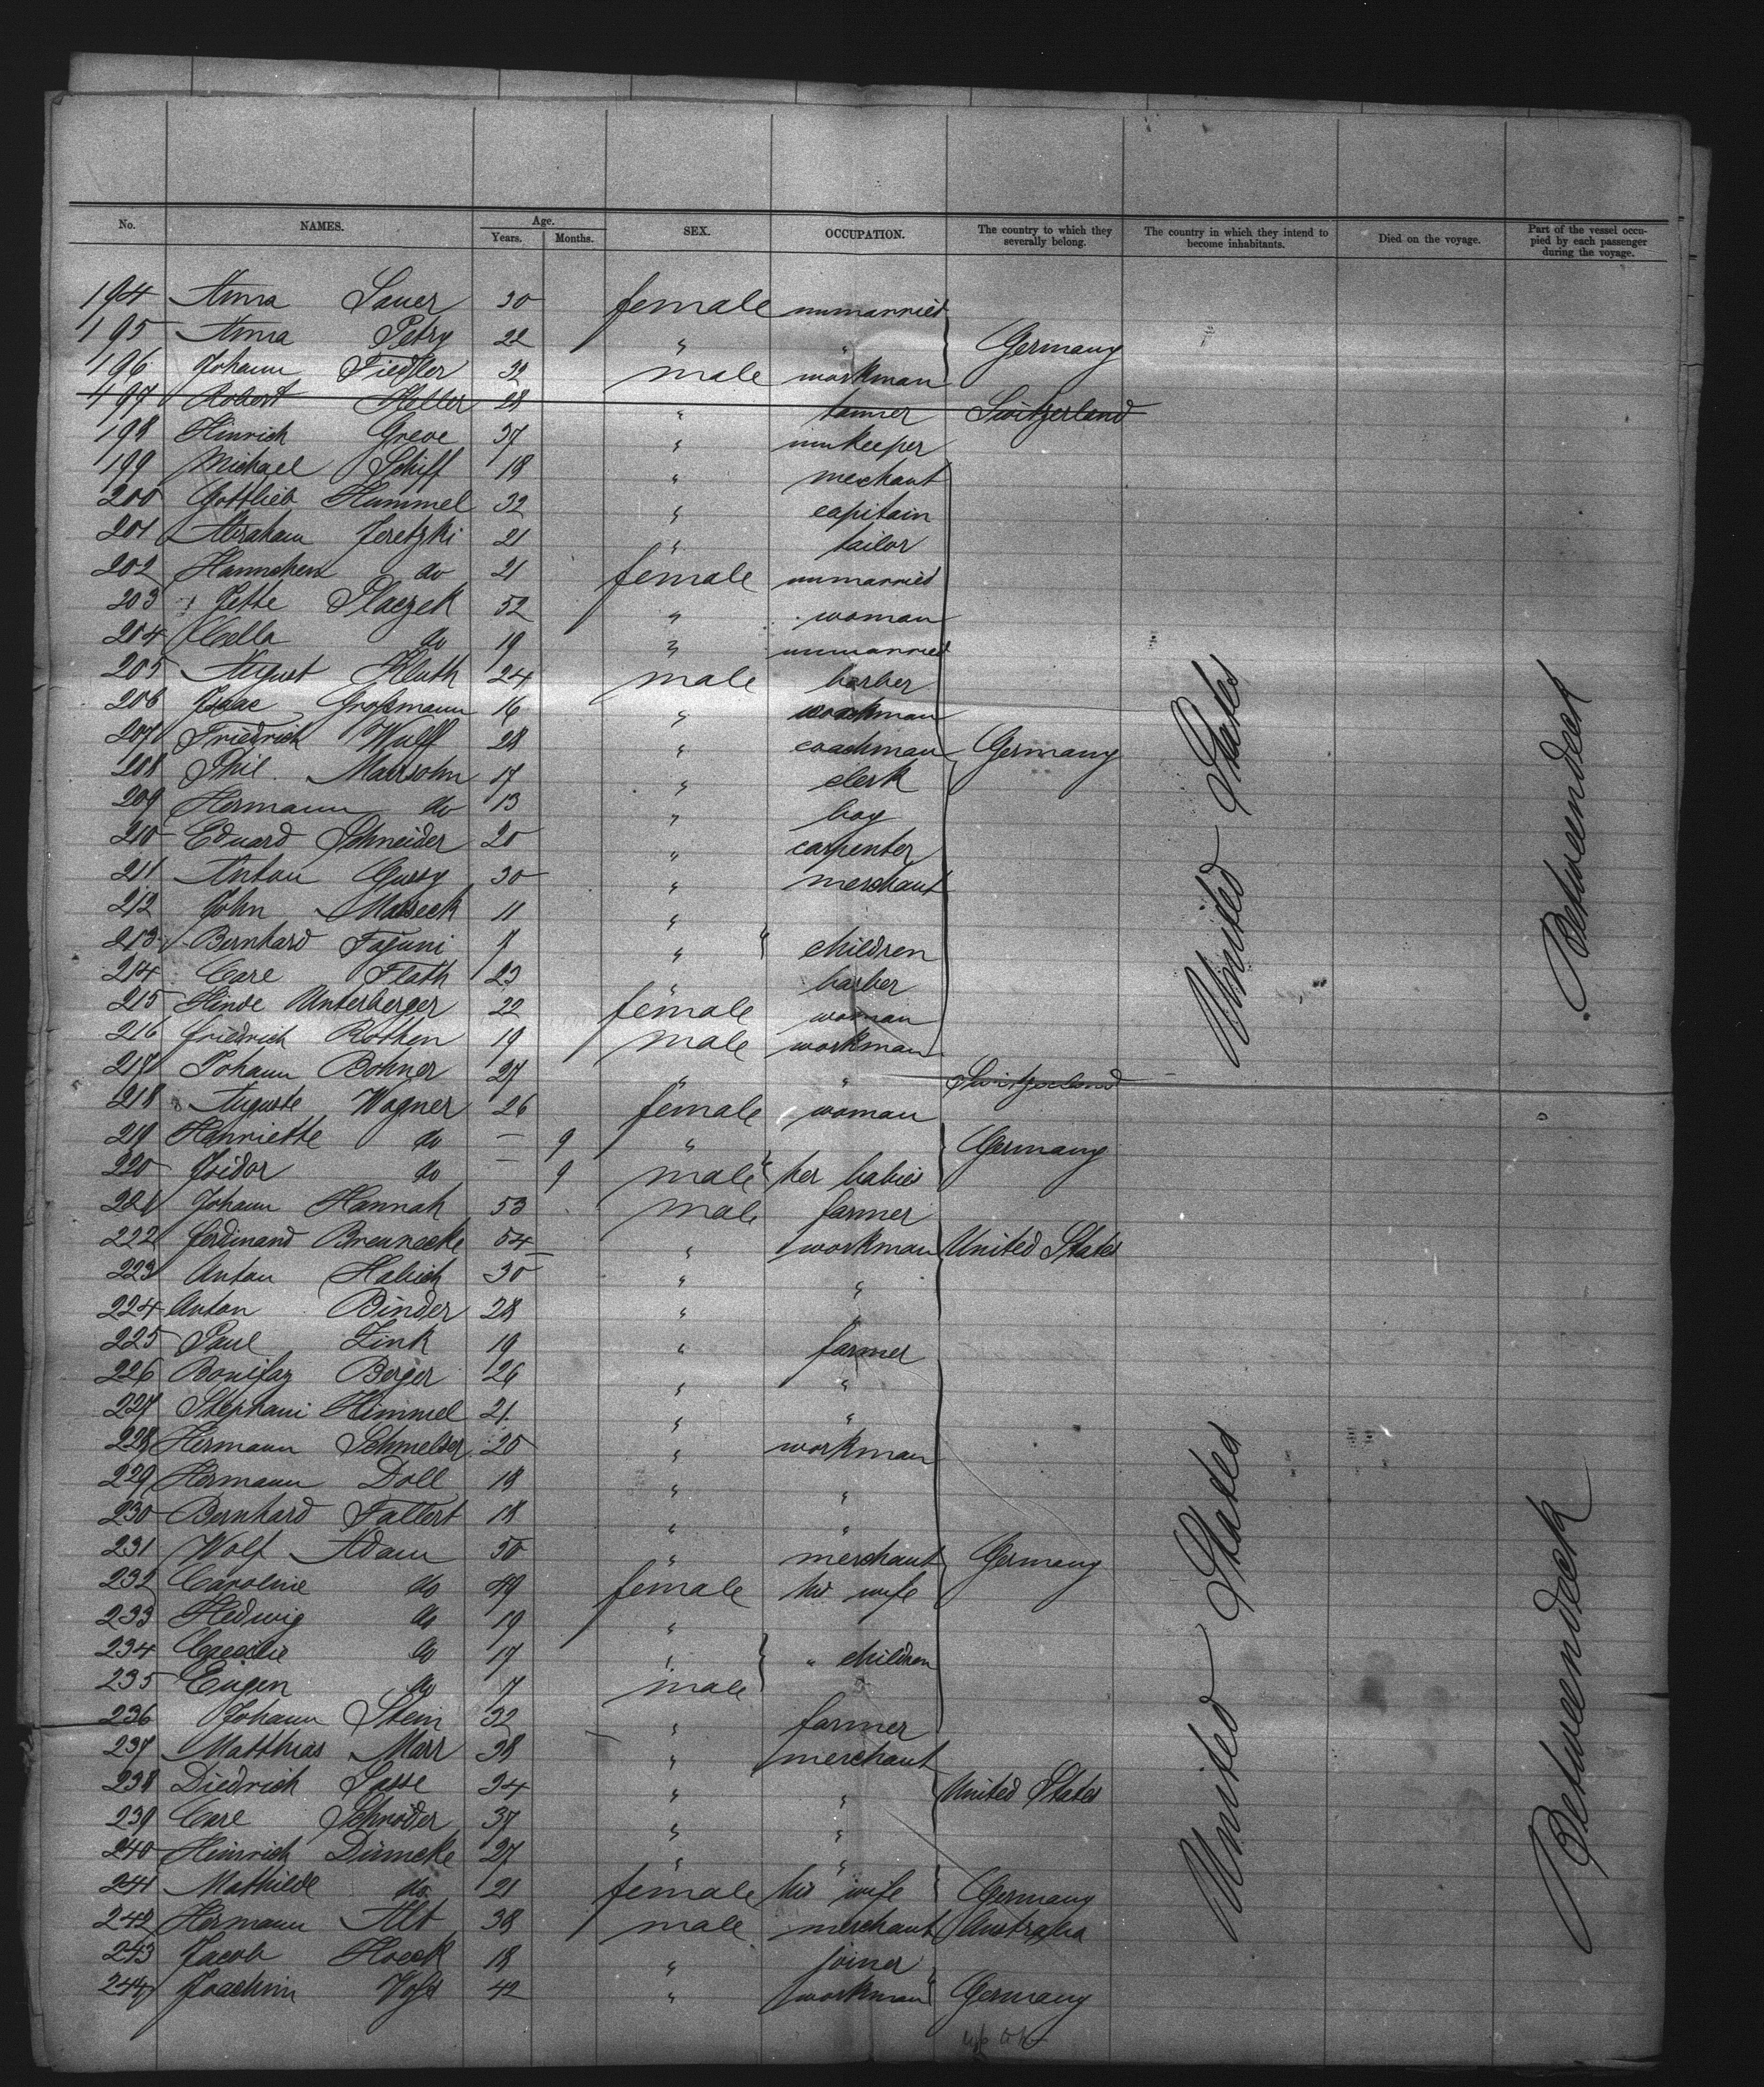 No. NAMES. Age. Years. Months. SEX. OCCUPATION. The country to which they severally belong. The country in which they intend to become inhabitants. Died on the voyage. Part of the vessel occupied by each passenger during the voyage.
194 Anna Sauer 30 female unmarried
195 Anna Petry 22 " " Germany
196 Johann Fiedler 32 male workman
197 Robert Keller 28 " tanner Switzerland
198 Hinrich Greve 37 " innkeeper
199 Michael Schiff 18 " mechant
200 Gottlieb Hummel 32 " capitain
201 Abraham Jeretzki 21 " tailor
202 Hannchen do 21 female unmarried
203 Jette Placzek 52 " woman
204 Cella do 19 " unmarried
205 August Kluth 24 male barber
206 Isaac Großmann 16 " workman
207 Friedrich Wulff 28 " coachman Germany
208 Phil. Marsohn 17 " clerk
209 Hermann do 13 " boy
210 Eduard Schneider 20 " carpenter
211 Anton Gussy 30 " merchant
212 John Masseck 11 "
213 Bernhard Fajuni 7 " children
214 Carl Flath 23 " barber
215 Hinde Unterberger 22 female woman
216 Friedrich Rothen 19 male workman
217 Johann Bohner 27 " " Switzerland
218 Auguste Wagner 26 female woman
219 Henriette do — 9 " Germany
220 Isidor do — 9 male her babies
221 Johann Hannah 53 male farmer
222 Ferdinand Brennecke 54 " workman United States
223 Anton Habich 30 " "
224 Anton Binder 28 " "
225 Paul Zink 19 " farmer
226 Bonifaz Berger 26 " "
227 Stephani Himmel 21 " "
228 Hermann Schmelzer 20 " workman
229 Hermann Doll 18 " "
230 Bernhard Fallert 18 " "
231 Wolf Adam 50 " merchant Germany
232 Caroline do 49 female his wife
233 Hedwig do 19 "
234 Caecilie do 17 " " children
235 Eugen do 7 male
236 Johann Stein 32 " farmer
237 Matthias Marr 38 " merchant
238 Diedrich Sasse 34 " " United States
239 Carl Schröder 37 " "
240 Heinrich Dümcke 27 " "
241 Mathilde do 21 female his wife Germany
242 Hermann Alt 38 male merchant Australia
243 Jacob Hoeck 18 " joiner
244 Joachim Voß 42 " workman Germany
United States
Betweendeck
United States
Betweendeck